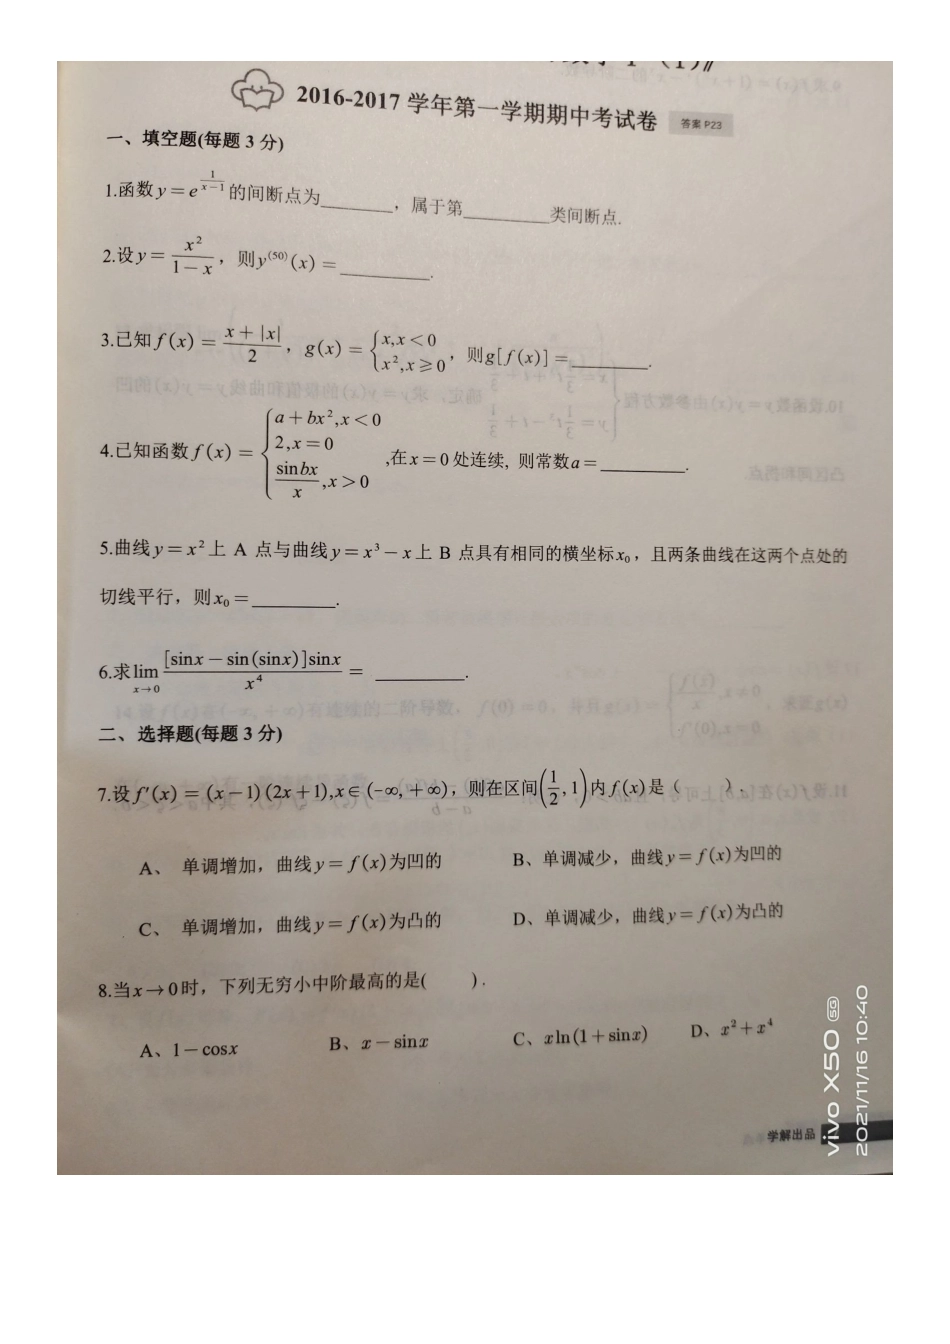 2016-2017 学年第一学期期中考试卷 答案 P23
一、填空题(每题 3 分)
1.函数 y = e^{\frac{1}{x-1}} 的间断点为________，属于第________类间断点.
2.设 y = \frac{x^2}{1-x}，则 y^{(50)}(x) = ________.
3.已知 f(x) = \frac{x+|x|}{2}，g(x) = \begin{cases} x, x<0 \\ x^2, x≥0 \end{cases}，则 g[f(x)] = ________.
4.已知函数 f(x) = \begin{cases} a+bx^2, x<0 \\ 2, x=0 \\ \frac{\sin bx}{x}, x>0 \end{cases} ,在 x=0 处连续, 则常数 a= ________.
5.曲线 y=x^2 上 A 点与曲线 y=x^3-x 上 B 点具有相同的横坐标 x_0，且两条曲线在这两个点处的
切线平行，则 x_0 = ________.
6.求 \lim_{x→0} \frac{[\sin x - \sin(\sin x)]\sin x}{x^4} = ________.
二、选择题(每题 3 分)
7.设 f'(x) = (x-1)(2x+1), x∈(-∞,+∞)，则在区间(\frac{1}{2},1)内 f(x)是（ ）.
A、 单调增加，曲线 y=f(x)为凹的 B、单调减少，曲线 y=f(x)为凹的
C、 单调增加，曲线 y=f(x)为凸的 D、单调减少，曲线 y=f(x)为凸的
8.当 x→0 时，下列无穷小中阶最高的是( ).
A、1-cosx B、x-sinx C、xln(1+sinx) D、x^2+x^4
学解出品
vivo X50 5G
2021/11/16 10:40